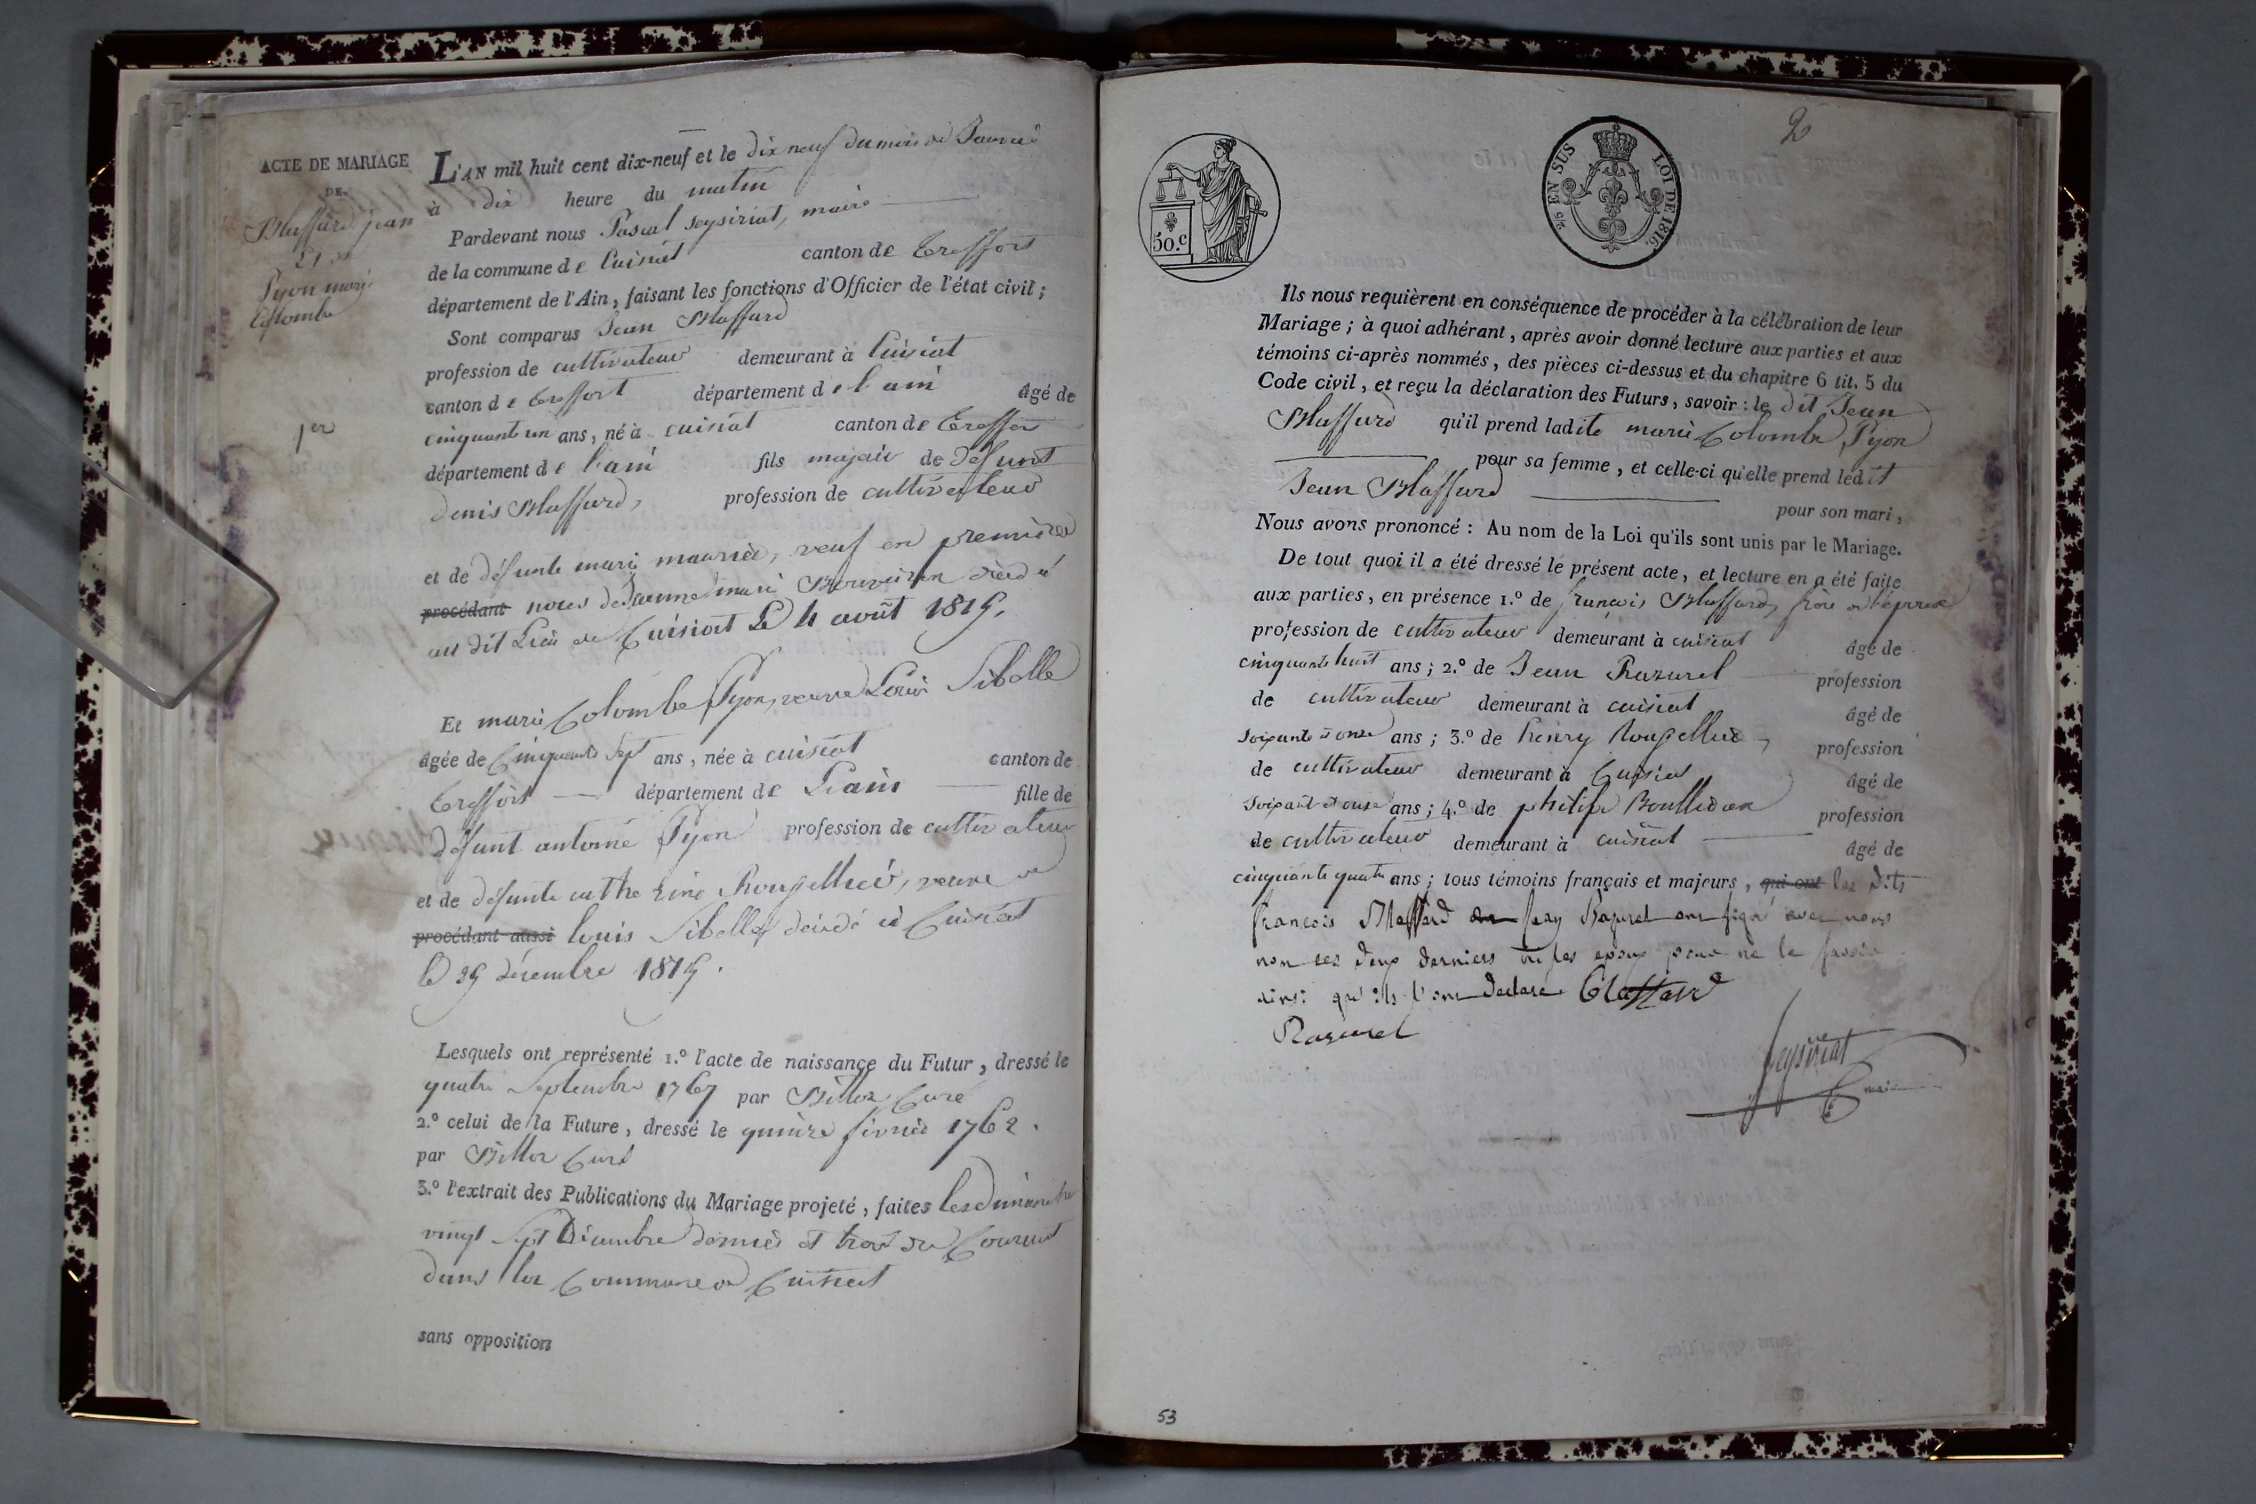 ACTE DE MARIAGE
DE
Blaffard jean
Et
Pyon marie
Colombe
1er
L'AN mil huit cent dix-neuf et le dix neuf du mois de Janvier
à dix heure du matin
Pardevant nous Pascal Seysiriat, maire
de la commune de Cuisiat canton de Treffort
département de l'Ain, faisant les fonctions d'Officier de l'état civil ;
Sont comparus Jean Blaffard
profession de cultivateur demeurant à Cuisiat
canton de Treffort département de l'ain âgé de
cinquante un ans, né à cuisiat canton de Treffort
département de l'ain fils majeur de défunt
denis Blaffard, profession de cultivateur
et de défunte marie mauriée, veuf en premières
procédant noces de Jeanne marie Bouveiron décédée
au dit Lieu de Cuisiat Le 4 août 1815.
Et marie Colombe Pyon, veuve Louis Sibelle
âgée de Cinquante Sept ans, née à cuisiat canton de
Treffort département de L'ain fille de
défunt antoine Pyon profession de cultivateur
et de défunte catherine Rougellied, veuve de
procédant aussi louis Sibelle décédé à Cuisiat
le 29 décembre 1815.
Lesquels ont représenté 1.º l'acte de naissance du Futur, dressé le
quatre Septembre 1767 par Billoz Curé
2.º celui de la Future, dressé le quinze février 1762.
par Billoz Curé
3.º l'extrait des Publications du Mariage projeté, faites les dimanche
vingt Sept Décembre dernier et trois du Courant
dans la Commune de Cuisiat
sans opposition
2
50.c
EN SUS
LOI DE 1816.
Ils nous requièrent en conséquence de procéder à la célébration de leur
Mariage ; à quoi adhérant, après avoir donné lecture aux parties et aux
témoins ci-après nommés, des pièces ci-dessus et du chapitre 6 tit. 5 du
Code civil, et reçu la déclaration des Futurs, savoir : le dit Jean
Blaffard qu'il prend ladite marie Colombe Pyon
pour sa femme, et celle-ci qu'elle prend ledit
Jean Blaffard pour son mari,
Nous avons prononcé : Au nom de la Loi qu'ils sont unis par le Mariage.
De tout quoi il a été dressé le présent acte, et lecture en a été faite
aux parties, en présence 1.º de francois Blaffard, frère de l'époux
profession de cultivateur demeurant à cuisiat âgé de
cinquante huit ans ; 2.º de Jean Razurel profession
de cultivateur demeurant à cuisiat âgé de
soixante et onze ans ; 3.º de henry Rougellied, profession
de cultivateur demeurant à Cuisiat âgé de
soixante et onze ans ; 4.º de philipe Boullidan profession
de cultivateur demeurant à cuisiat âgé de
cinquante quatre ans ; tous témoins français et majeurs, qui ont les dits
francois Blaffard Jean Razurel ont signé avec nous
non les deux derniers ni les epoux pour ne le savoir
ainsi qu'ils l'ont declaré Blaffard
Razurel
Seysiriat
maire
53